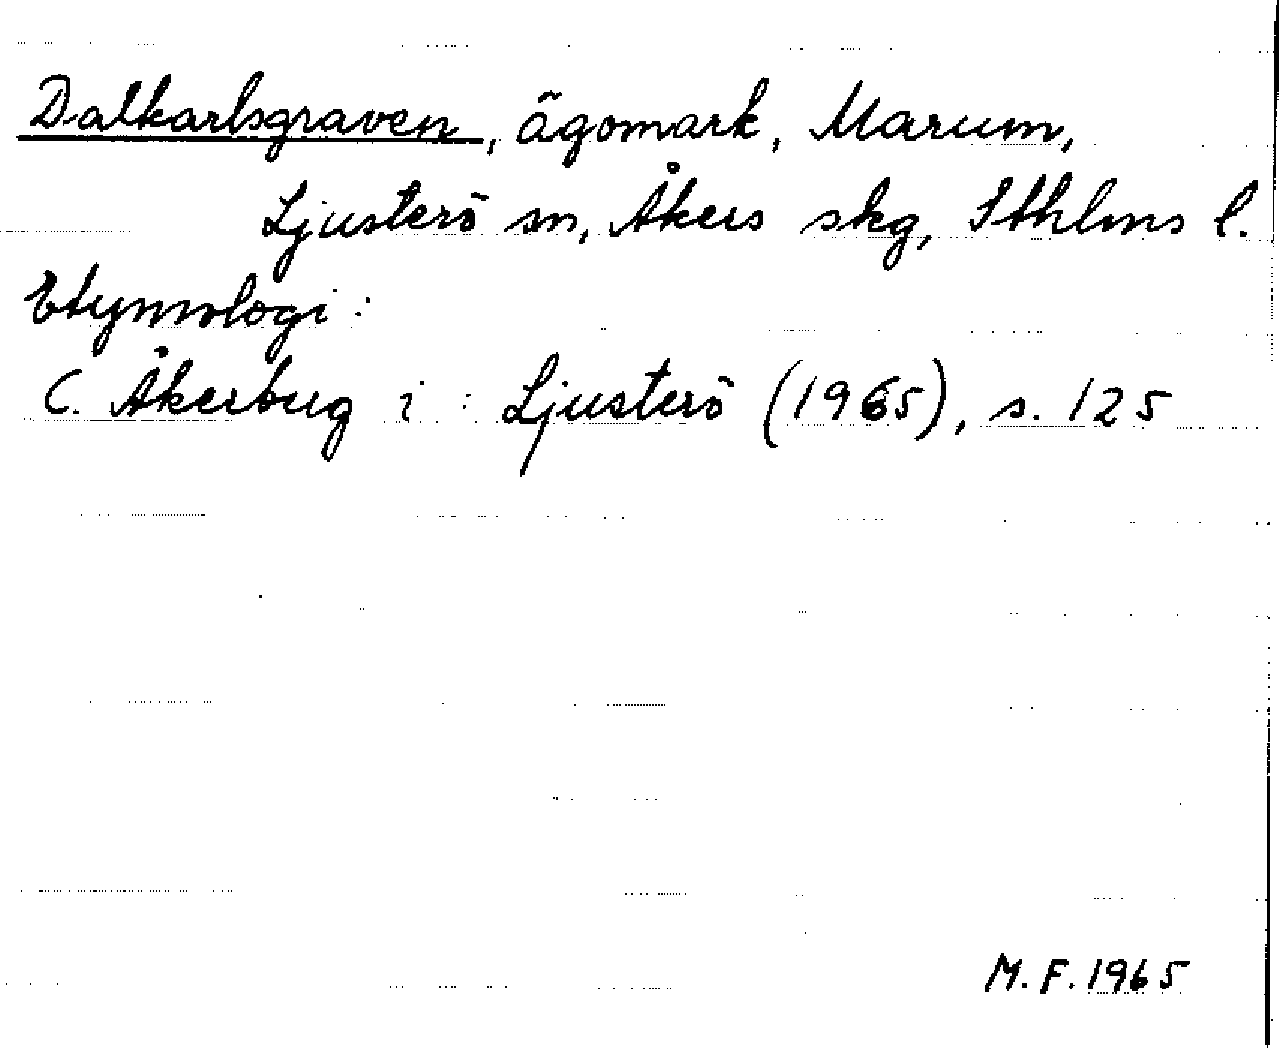 Dalkarlsgraven, ägomark, Marum,
Ljusterö sn, Åkers skg, Sthlms l.
Etymologi:
C. Åkerbug i: Ljusterö (1965), s. 125
M. F. 1965